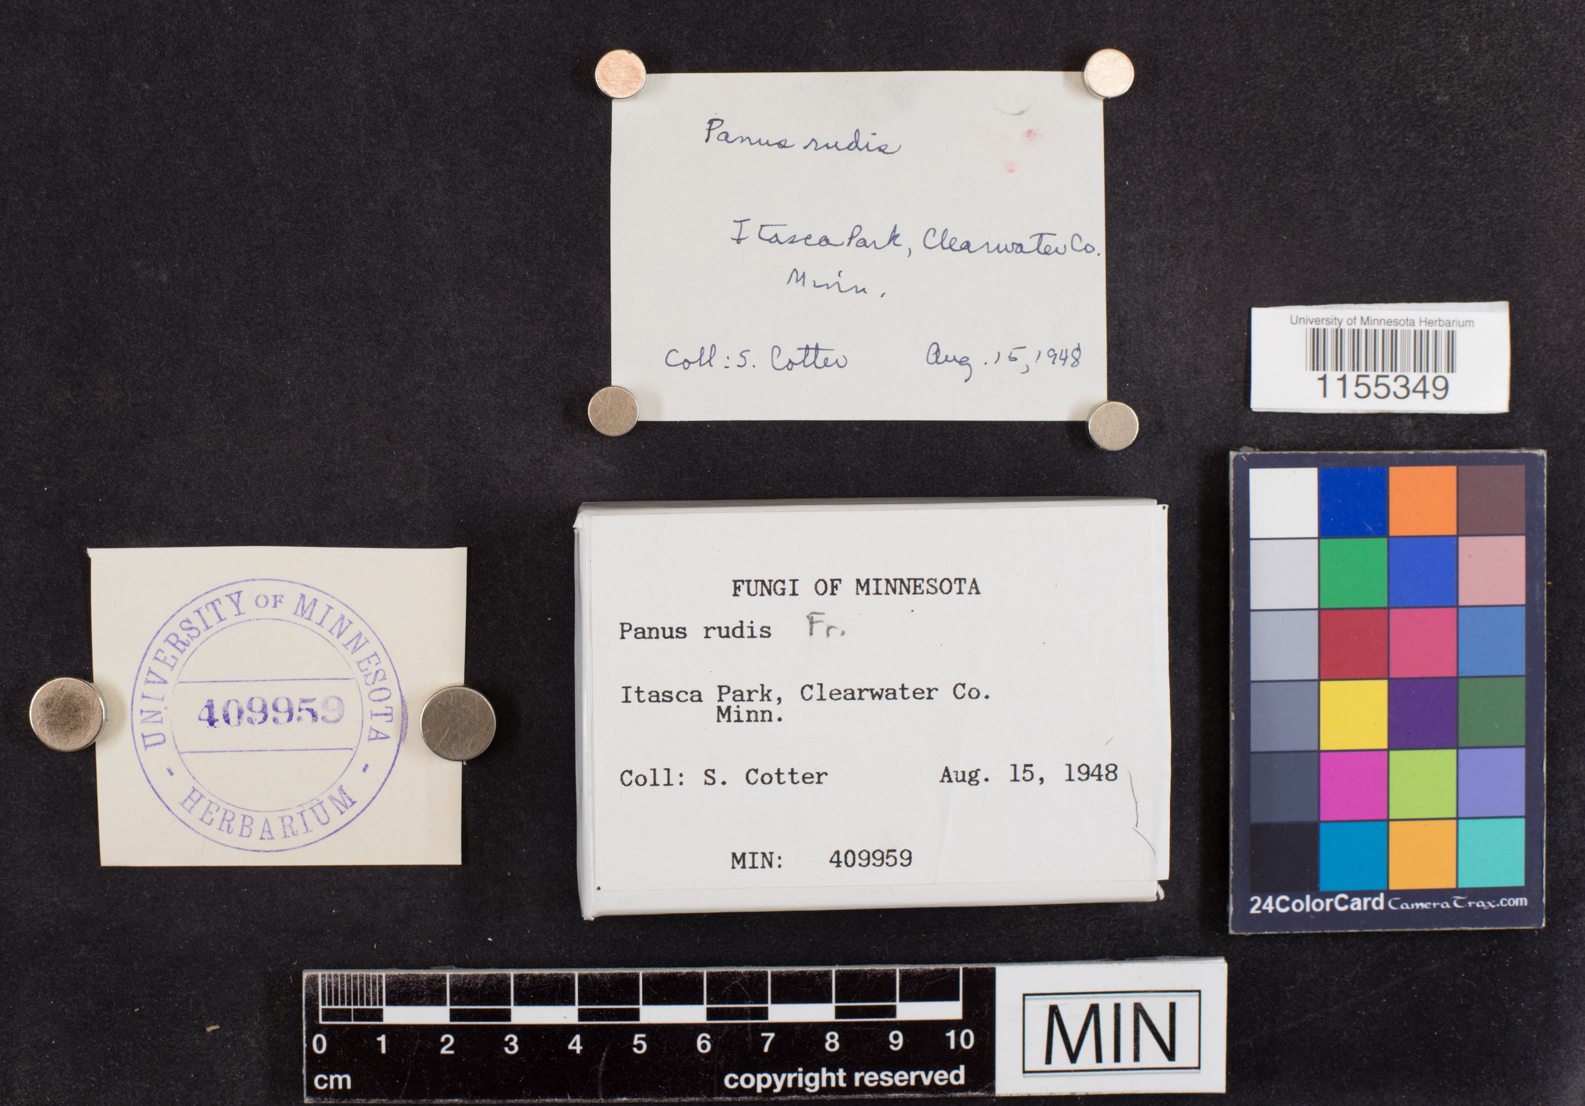 Panus rudis
Itasca Park, Clearwater Co.
Minn.
Coll: S. Cotter Aug. 15, 1948
University of Minnesota Herbarium
1155349
UNIVERSITY OF MINNESOTA
409959
- HERBARIUM -
FUNGI OF MINNESOTA
Panus rudis Fr.
Itasca Park, Clearwater Co.
Minn.
Coll: S. Cotter Aug. 15, 1948
MIN: 409959
24ColorCard CameraTrax.com
0 1 2 3 4 5 6 7 8 9 10
cm copyright reserved
MIN